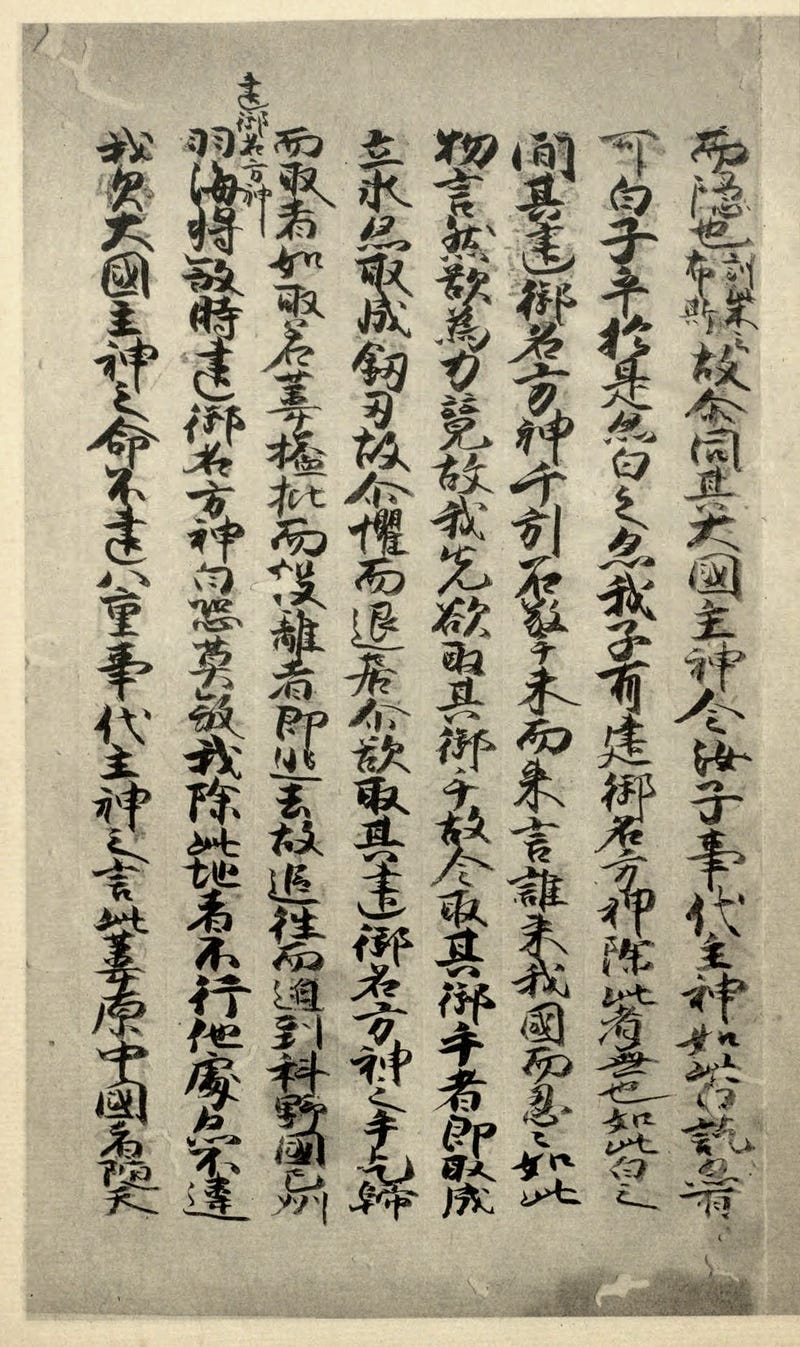 而隠也訓柴云布斯故尒同其大國主神今汝子事代主神如此白訖亦有
可白子乎於是亦白之亦我子有建御名方神除此者無也如此白之
間其建御名方神千引石擎手末而来言誰来我國而忍々如此
物言然欲為力競故我先欲取其御手故令取其御手者即取成
立氷亦取成釼刃故尒懼而退居尒欲取其建御名方神之手乞歸
而取者如取若葦搤批而投離者即逃去故追往而迫到科野國之州
建御名方神
羽海将殺時建御名方神白恐莫殺我除此地者不行他處亦不違
我父大國主神之命不違八重事代主神之言此葦原中國者随天